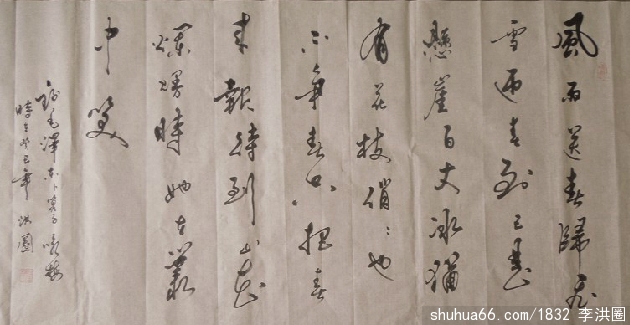 風雨送春歸飛
雪迎春到已是
懸崖百丈冰猶
有花枝俏〻也
不争春只把春
来報待到山花
爛漫時她在叢
中笑
録毛澤東卜算子咏梅
時在癸巳年 洪圈
shuhua66.com/1832 李洪圈